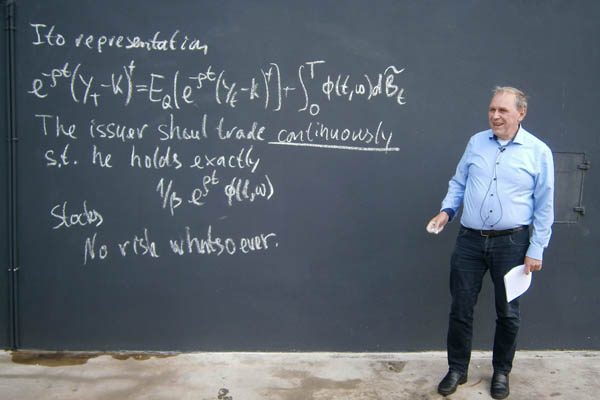 Ito representation
e^{-ρt}(Y_T-K)^+ = E_Q[e^{-ρt}(Y_t-K)^+] + ∫_0^T φ(t,ω)dB̃_t
The issuer shoul trade continuously
s.t. he holds exactly
1/β e^{ρt} φ(t,ω)
Stocks
No risk whatsoever.